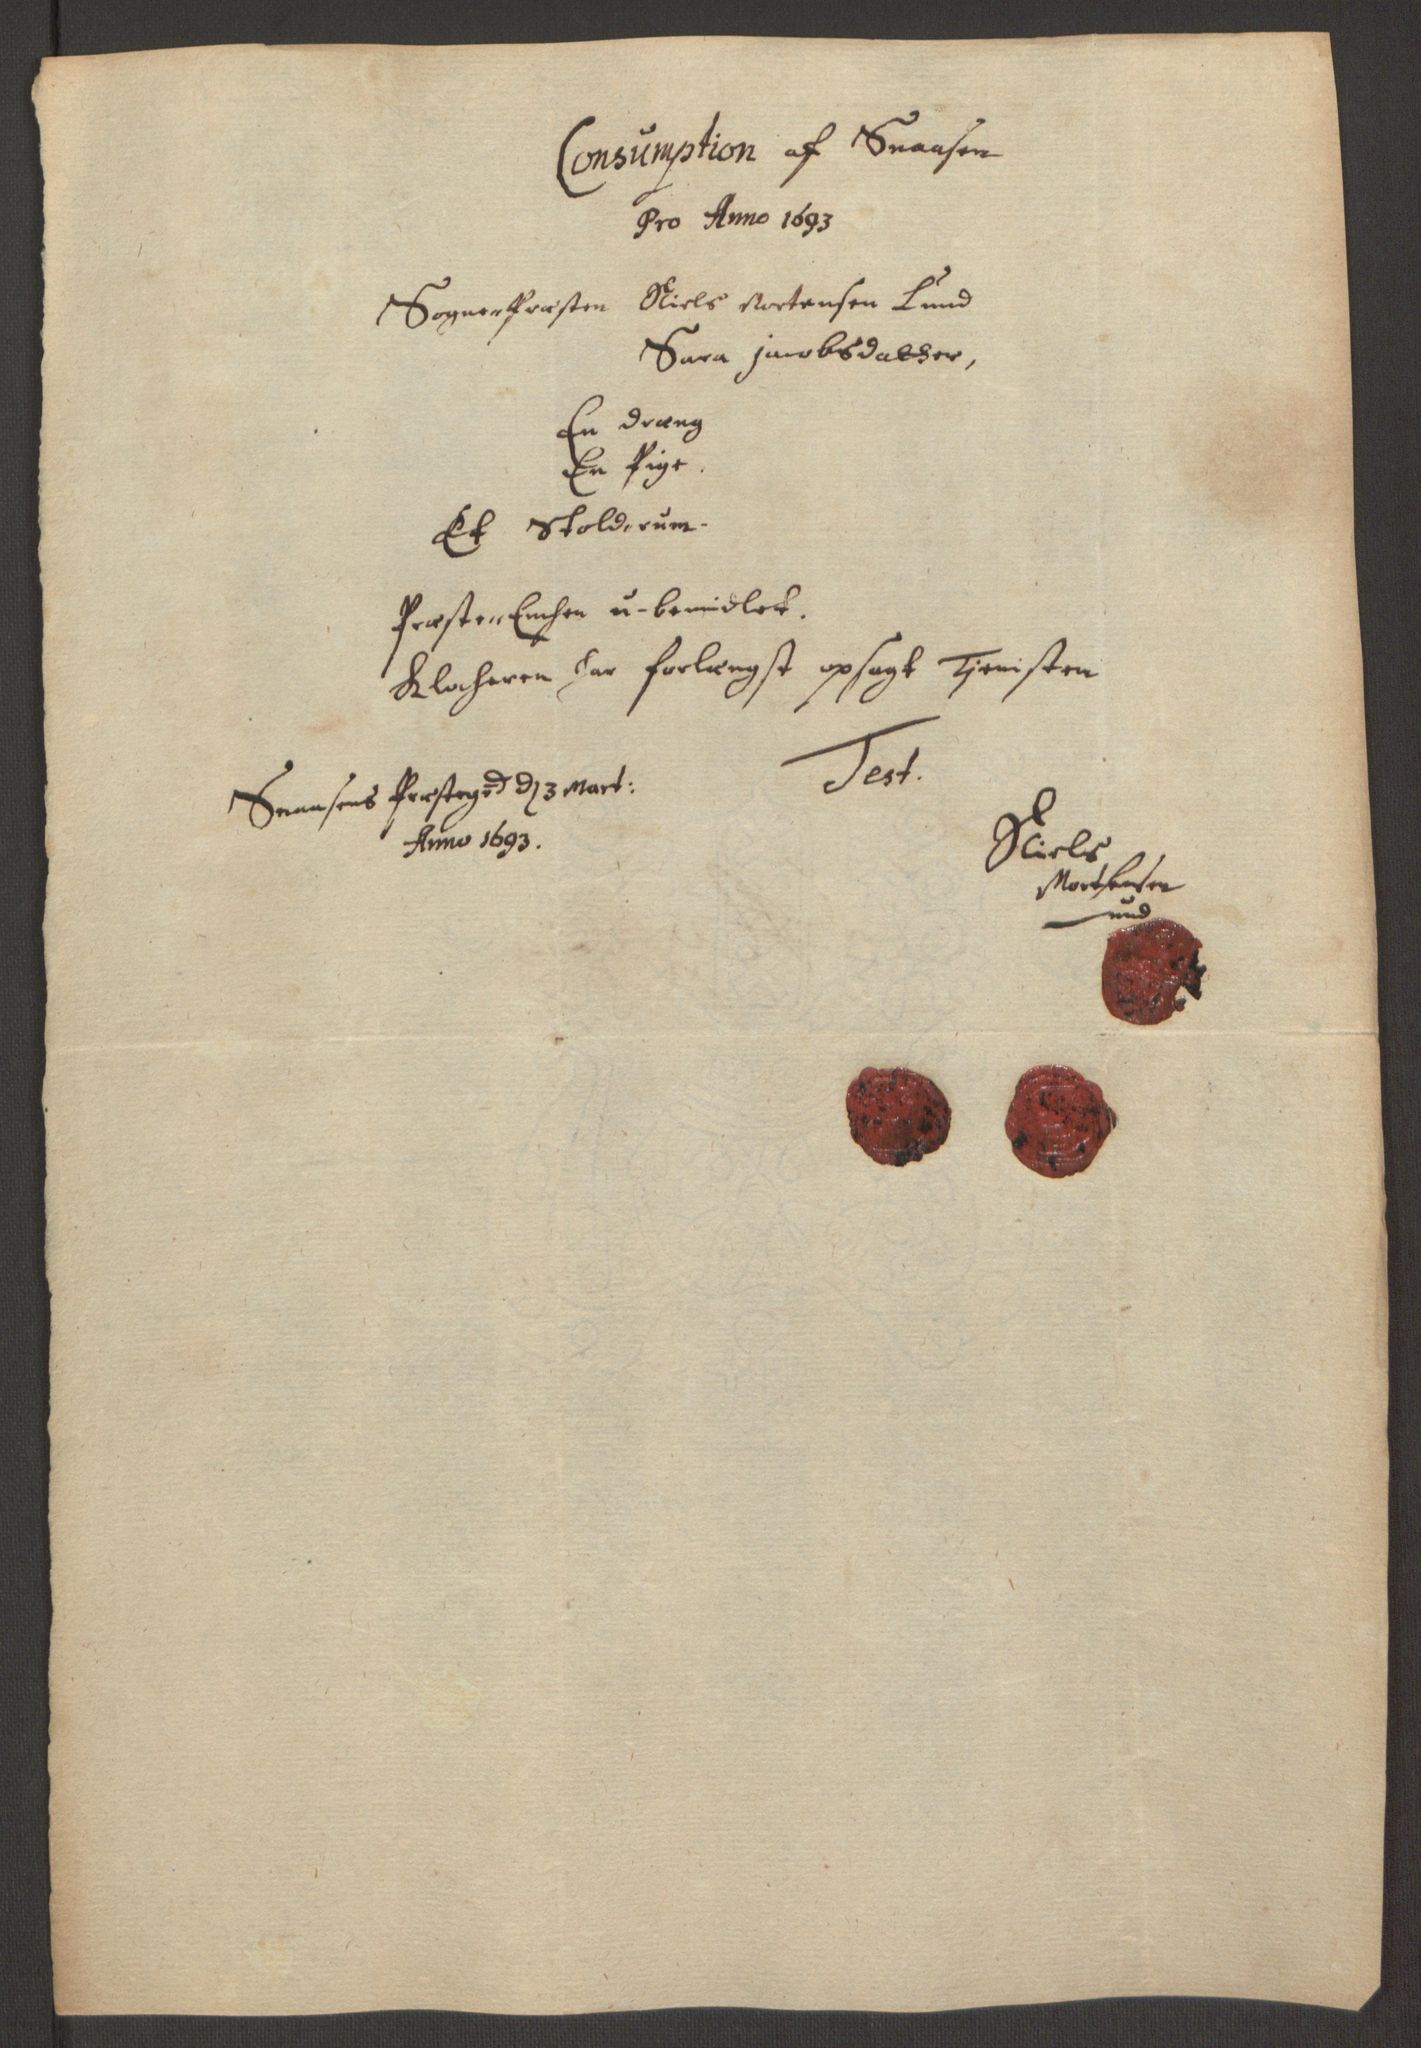 Consumption af Snaasen
Pro Anno 1693
Sogne Præsten Niels Mortensen Lund
Sara Jacobsdatter,
En dreng
En Pige.
Et Skolderum.
Præste Enchen u-bemidlet.
Klocheren har forlængst opsagt Tjenisten
Test.
Snaasens Præstegrd d 3 Mart:
Anno 1693.
Niels
Mortensen
Lund